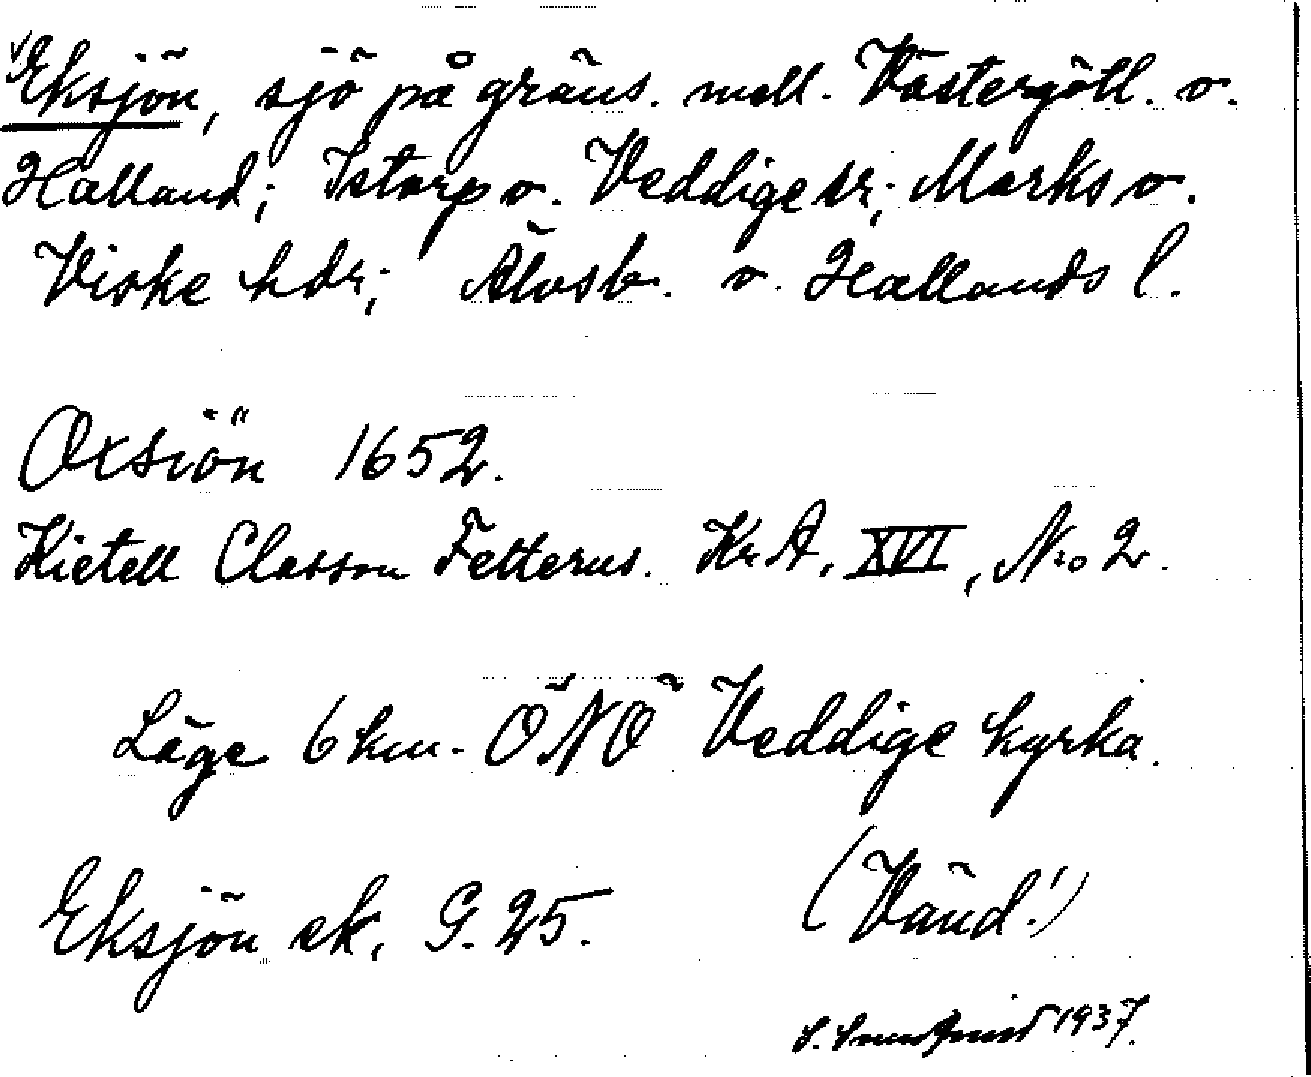 Eksjön, sjö på gräns. mell. Västergötl. o.
Halland; Istorp o. Veddige sr; Marks o.
Viske hdr; Älvsb. o. Hallands l.
Oxsiön 1652.
Kietell Classon Felterus. Kr.A. XVI, No 2.
Läge 6 km. ÖNÖ Veddige kyrka.
Eksjön ek. G. 25. (Vänd!)
S. 1937.